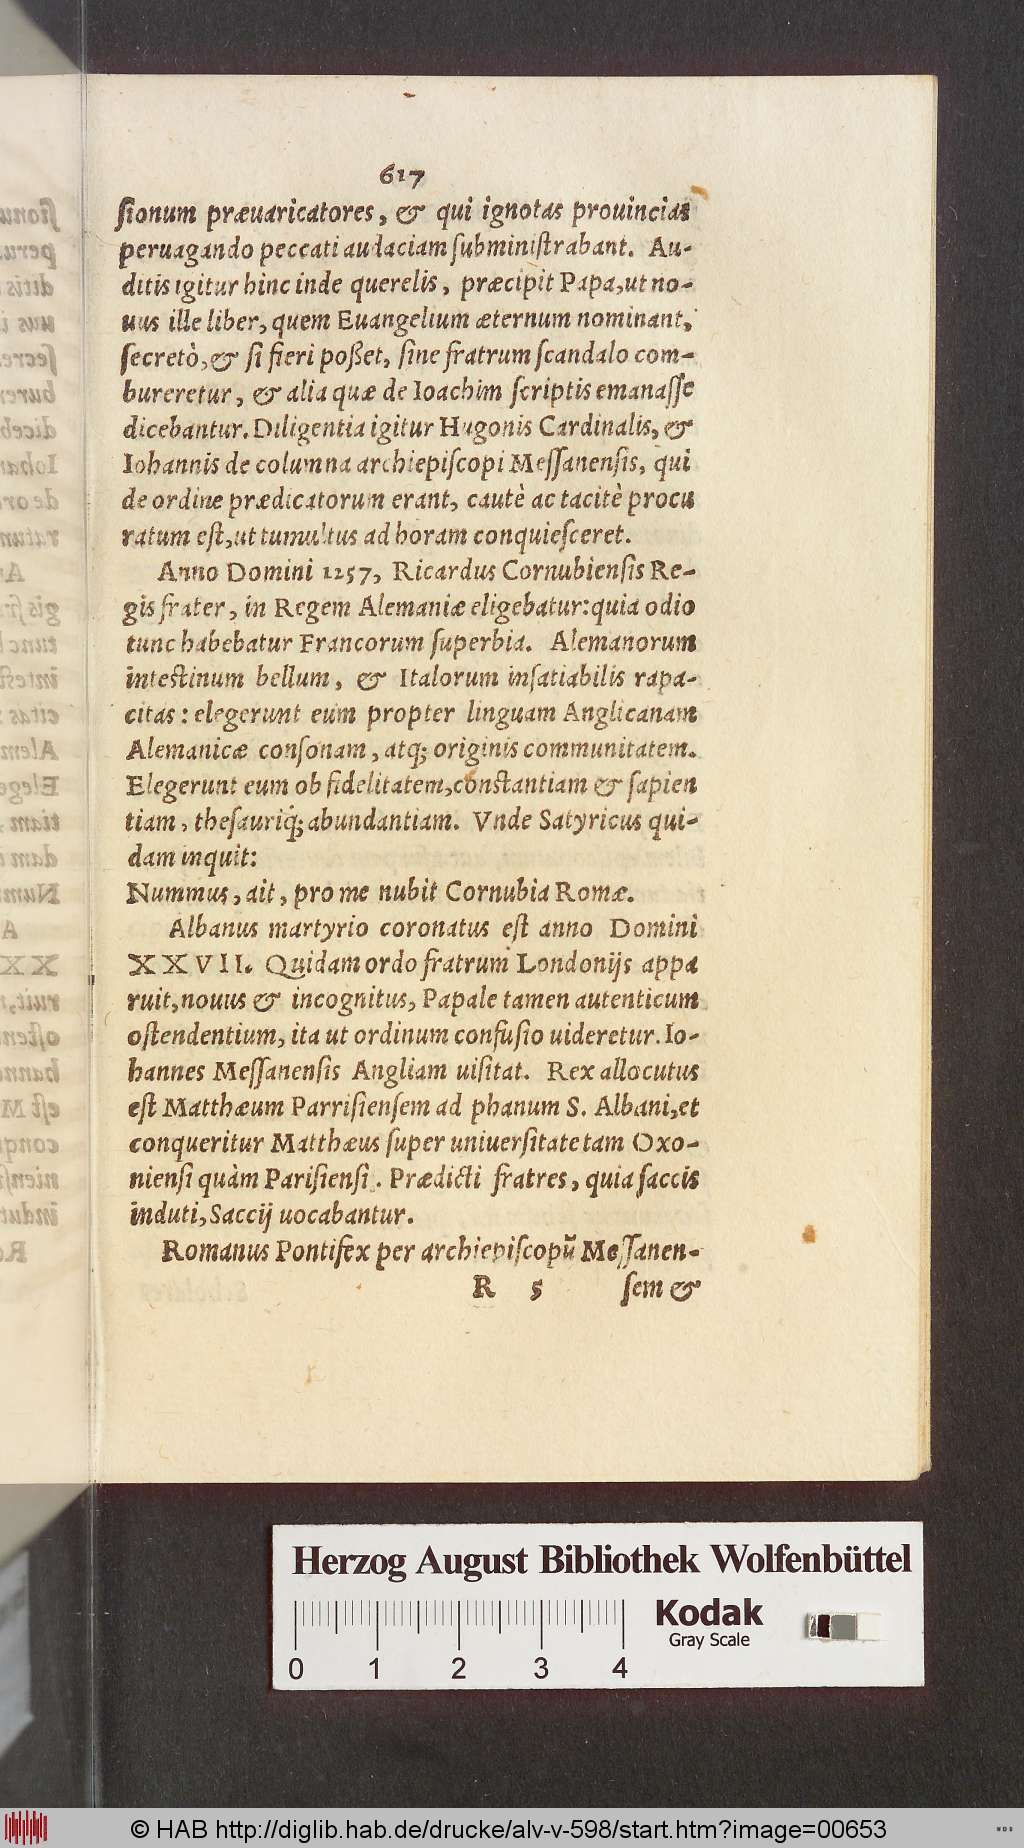 617
ſionum præuaricatores, & qui ignotas prouincias
peruagando peccati audaciam ſubminiſtrabant. Au-
ditis igitur hinc inde querelis, præcipit Papa, ut no-
uus ille liber, quem Euangelium æternum nominant,
ſecretò, & ſi fieri poßet, ſine fratrum ſcandalo com-
bureretur, & alia quæ de Ioachim ſcriptis emanaſſe
dicebantur. Diligentia igitur Hugonis Cardinalis, &
Iohannis de columna archiepiſcopi Meſſanenſis, qui
de ordine prædicatorum erant, cautè ac tacitè procu
ratum eſt, ut tumultus ad horam conquieſceret.
Anno Domini 1257, Ricardus Cornubienſis Re-
gis frater, in Regem Alemaniæ eligebatur: quia odio
tunc habebatur Francorum ſuperbia. Alemanorum
inteſtinum bellum, & Italorum inſatiabilis rapa-
citas: elegerunt eum propter linguam Anglicanam
Alemanicæ conſonam, atq; originis communitatem.
Elegerunt eum ob fidelitatem, conſtantiam & ſapien
tiam, theſauriq́; abundantiam. Vnde Satyricus qui-
dam inquit:
Nummus, ait, pro me nubit Cornubia Romæ.
Albanus martyrio coronatus eſt anno Domini
XXVII. Quidam ordo fratrum Londonijs appa
ruit, nouus & incognitus, Papale tamen autenticum
oſtendentium, ita ut ordinum confuſio uideretur. Io-
hannes Meſſanenſis Angliam uiſitat. Rex allocutus
eſt Matthæum Parriſienſem ad phanum S. Albani, et
conqueritur Matthæus ſuper uniuerſitate tam Oxo-
nienſi quàm Pariſienſi. Prædicti fratres, quia ſaccis
induti, Saccij uocabantur.
Romanus Pontifex per archiepiſcopũ Meſſanen-
R 5 ſem &
Herzog August Bibliothek Wolfenbüttel
Kodak
Gray Scale
0 1 2 3 4
© HAB http://diglib.hab.de/drucke/alv-v-598/start.htm?image=00653